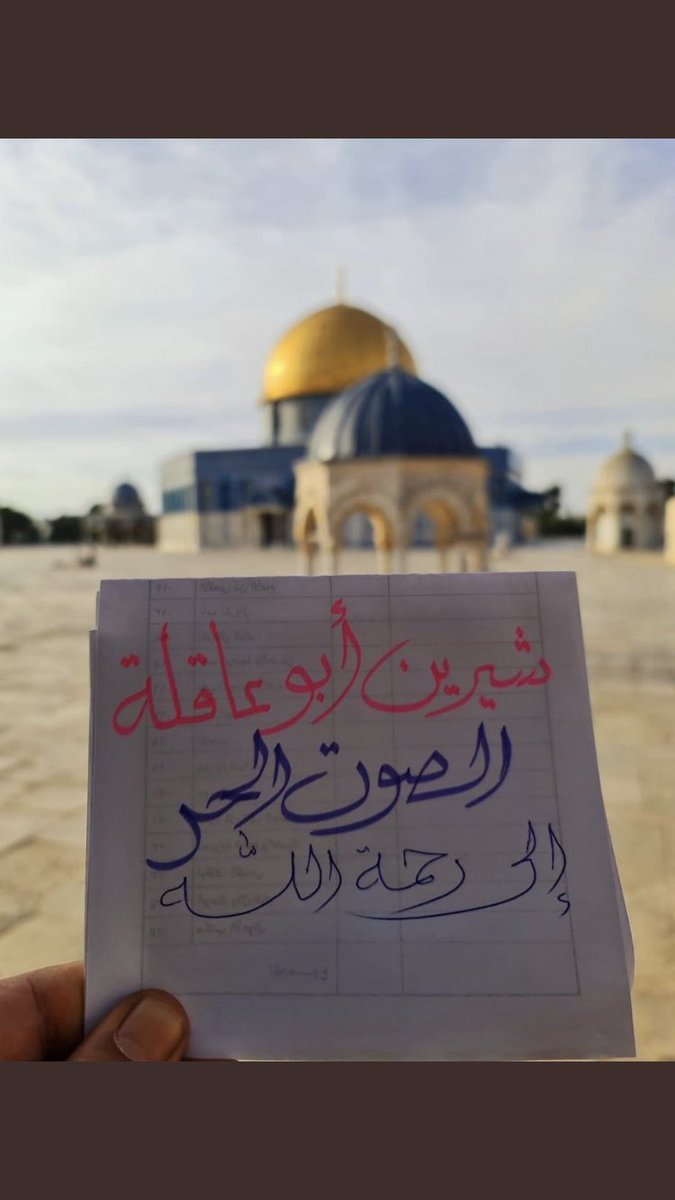 شيرين أبو عاقلة
الصوت الحر
إلى رحمة الله